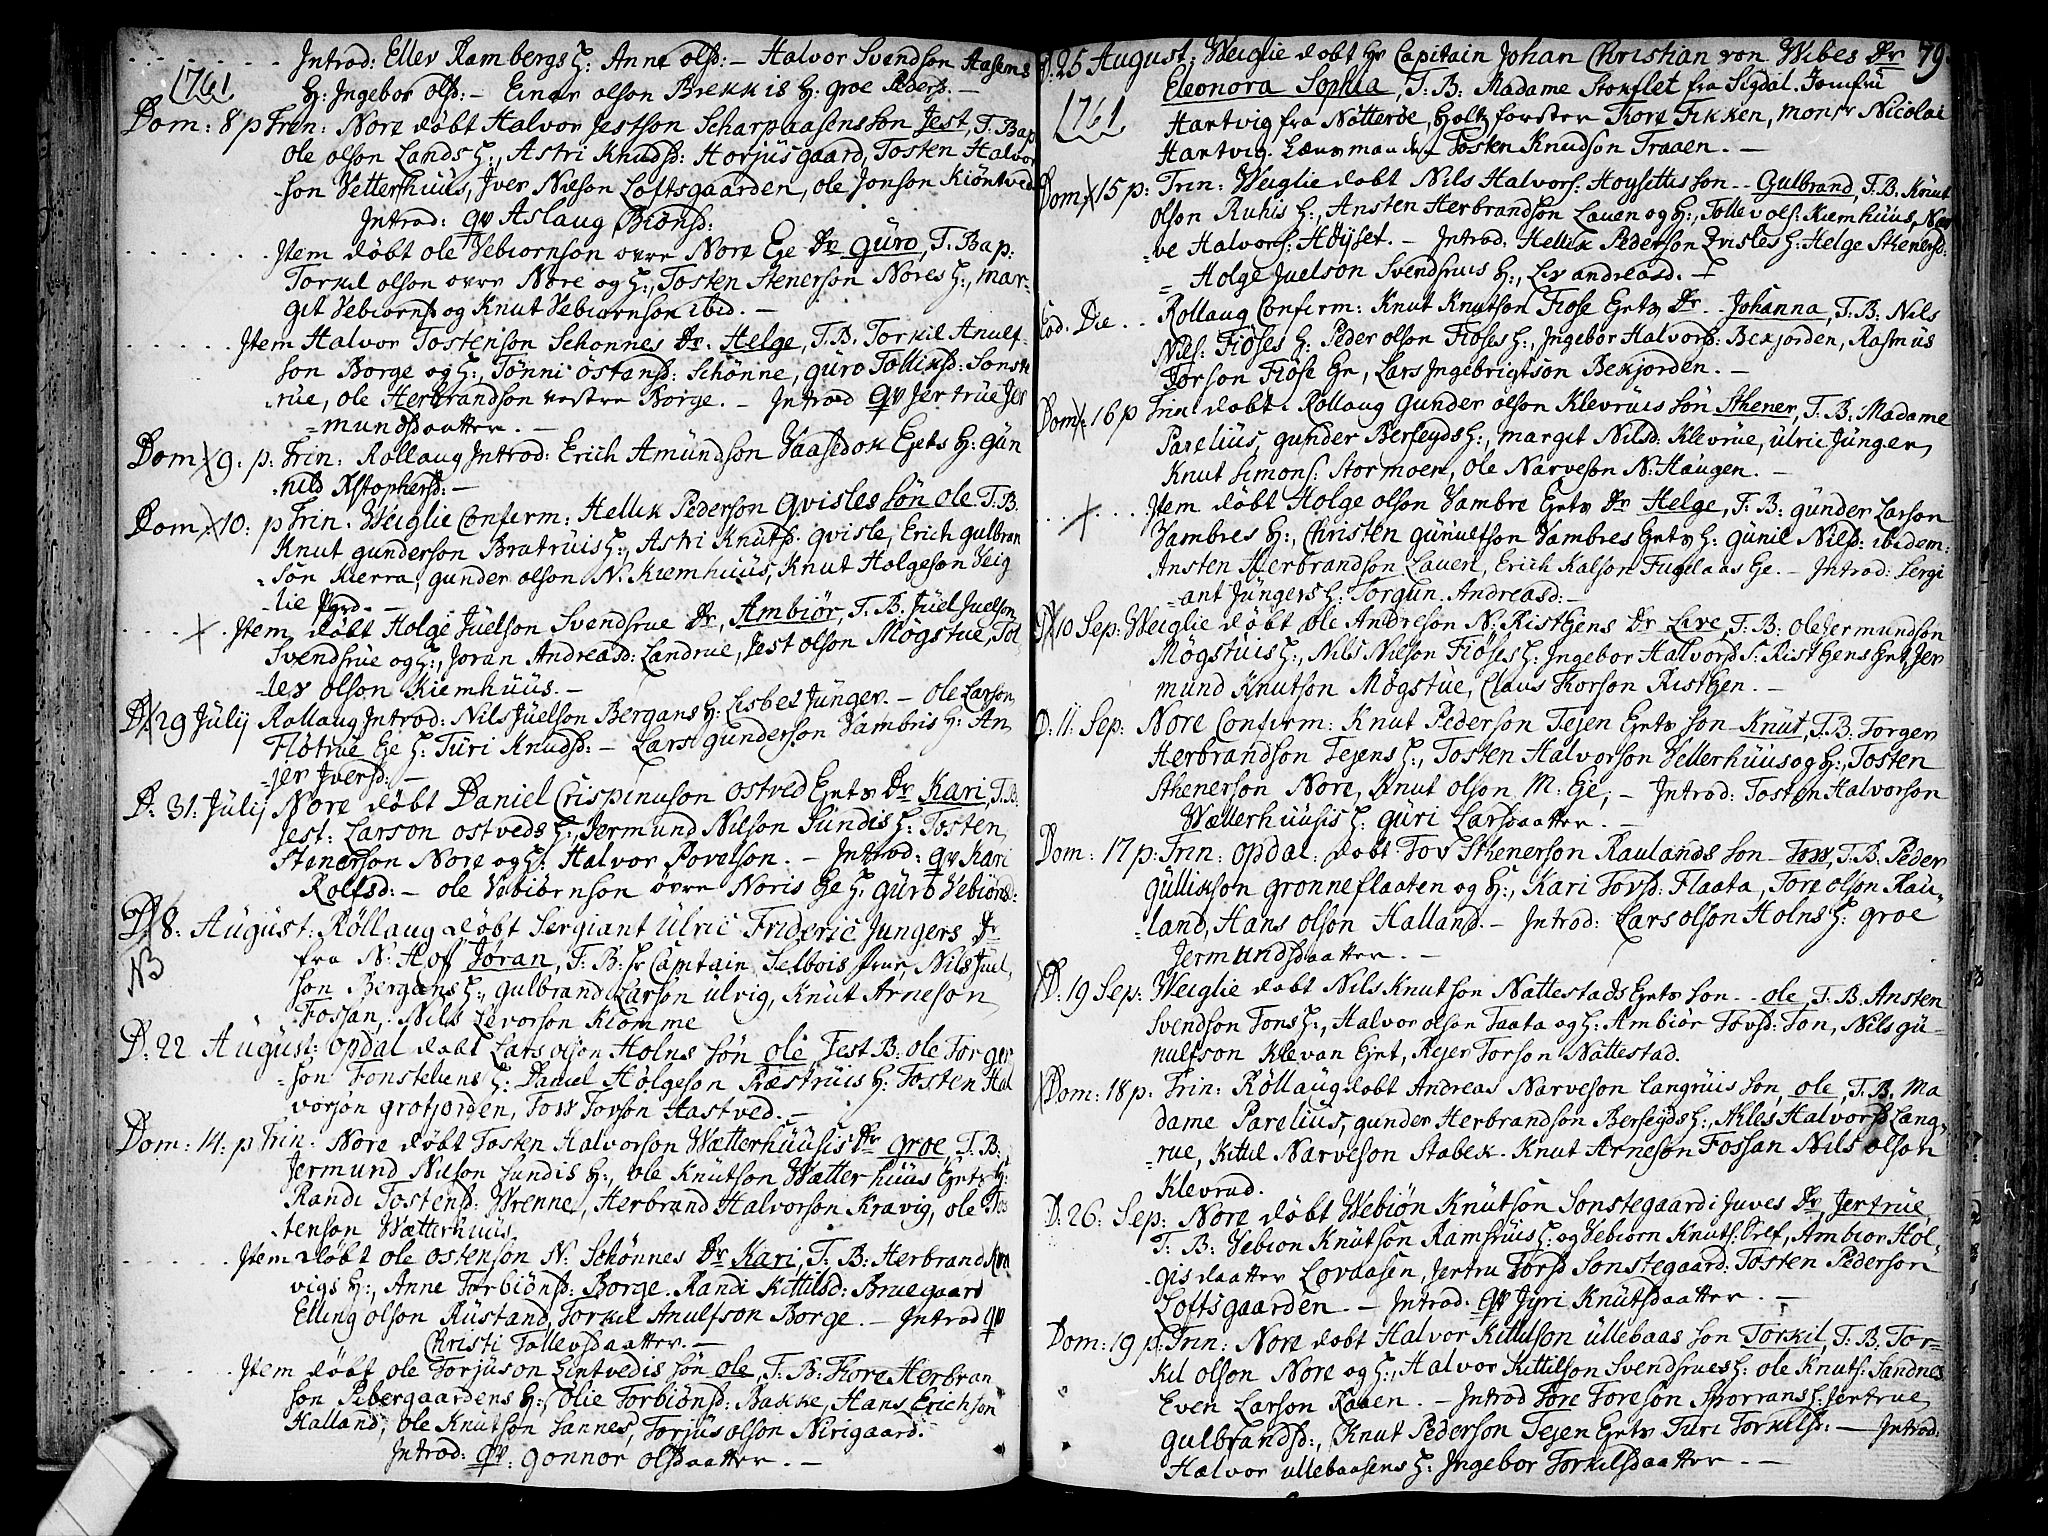 Introd: Ellev Rambergs H: Anne olsd:- Halvor Svendson Aasens
1761
H: Ingebor olsd:- Einar olson Brekkis H: Groe Peders. -
Dom: 8 p Trin: Nore döbt Halvor Jestson Scharpaasens son Jest, T. Bap
ole olson Lands H:, Astri Knuds: Horjusgaard, Tosten Halvor
-son Vetterhuus, Iver Nilson Loftsgaarden, ole Jonson Kiöntved
Introd: qv Aslaug Biönsd:
Item döbt ole Vebiornson ovre Nore Eje Dr Guro, T. Bap:
Torkil olson ovre Nore og H:, Tosten Stenerson Nores H:, Mar-
git Vebiornsd og Knut Vebiornson ibid. -
Item Halvor Tostenson Schonnes Dr. Helge, T.B. Torkil Anulf-
son Borge og H:, Tönni östensd: Schönne, Guro Tolliksd: Sonst
rue, ole Herbrandson vestre Borge. - Introd qv Jertrue Jer
=mundsdaatter. -
Dom 9. p: Trin: Rollaug Introd: Erich Amundson Vaasedok Ejets H: Gun
-nild Xstophersd: -
Dom: 10: p Trin. Weiglie Conferm: Hellik Pederson Qvisles sön ole T.B.
Knut Gunderson Bratruis H:, Astri Knutsd. Qvisle, Erich Gulbran
-sön Kierra, Gunder olson N. Kiemhuus, Knut Holgeson Veig
-lie Pgrd. -
Item döbt Holge Juelson Svendsrue Dr, Ambiör, T.B. Juel Juelson
Svendsrue og H:, Joran Andreasd: Landrue, Jest olson Mögstue, Tol
-lev olson Kiemhuus. -
D: 29 Julij Rollaug Introd: Nils Juelson Bergans H: Lisbet Junger. - ole Larson
Flötrue Eje H: Turi Knudsd: - Lars Gunderson Vambris H: An
-jer Iversd: -
D: 31: Julij Nore döbt Daniel Crispinuson ostved Ejets Dr Kari, T.B.
Jest: Larson ostveds H:, Jermund Nilson Sundis H: Tosten
Stenerson Nore og H: Halvor Povelson. - Introd: qv Kari
Rolfsd: - ole Vebiörnson övre Noris Eje H: Guro Vebiörnsd:
D 8: August: Röllaug döbt Sergiant Ulric Frideric Jungers Dr
NB
fra N: Hoff Jöran, T.B: Hr Captain Selbois Frue, Nils Juel
son Bergans H:, Gulbrand Larson ulvig, Knut Arneson
Fossan, Nils Levorson Kiomme
D: 22 August: opdal döbt Lars olson Holns sön ole Test B: ole Torger
-son Fonstelïens H: Daniel Holgeson Præstruis H: Tosten Hal
vorson grofjorden, Tow Torson Hastved. -
Dom: 14: p Trin. Nore döbt Tosten Halvorson Wætterhuusis Dr groe, T.B.
Jermund Nilson Sundis H:, ole Knutson Wætterhuus Ejets H:
Randi Tostensd: Wrenne, Herbrand Halvorson Kravig, ole Tos
-tenson Wætterhuus
Item döbt ole ostenson N. Schönnes Dr Kari, T. B: Herbrand Kra
vigs H:, Anne Torbiönsd: Borge. Randi Kittilsd: Bruegaard
Elling olson Rustand, Torkil Anulfson Borge. - Introd qv
Christi Tollevsdaatter. -
Item döbt ole Torjuson Lintvedis sön ole, T. B: Tore Herbran
son Pebergaardens H:, olie Torbiönsd: Bakke, Hans Erichson
Halland, ole Knutson Sannes, Torjus olson Nirigaard.
Introd: qv: Gonnor olsdaatter. -
D. 25 August. Weiglie döbt Hr Capitain Johan Christian von Wibes Dr 79
1761
Eleonora Sophia, T. B: Madame Stokflet fra Sigdal. Jomfru
Hartvig fra Nötteröe, Holtzforster Tore Fikken, Monsr Nicolai
Hartvig. Lænsmanden Tosten Knudson Traaen. -
Dom: 15 p: Trin: Weiglie döbt Nils Halvors: Höysettis son - Gulbrand, T. B. Knut
olson Ruhis H:, Ansten Herbrandson Laven og H:, Tollev ols: Kiemhuus, Nar
=ve Halvors: Höyset. - Introd: Hellik Pederson Qvisles H: Helge Sthenersd:
= Holge Juelson Svendsruis H:, Liv andreasd. -
Eod. Die.. Rollaug Conferm: Knut Knutson Fiose Ejets Dr. Johanna, T.B: Nils
Nils: Fiöses H: Peder olson Fiöses H:, Ingebor Halvorsd: Bekjorden, Rasmus
Torson Fiöse Eje, Lars Ingebrigtson Bekjorden. -
Dom: 16 p Trin: döbt. Rollaug Gunder olson Klevruis sön Sthener, T. B: Madame
Parelius, Gunder Berseyds H:, Margit Nilsd: Klevrue, ulric Junger,
Knut Simons: Stormoen, ole Narveson N: Haugen. -
Item döbt Holge olson Vambre Ejets Dr Helge, T. B: Gunder Larson
Vambres H:, Christen Gunulfson Vambres Ejets H: Gunil Nilsd: ibidem:
Ansten Herbrandson Laven, Erich Kalson Fuglaas Eje. - Introd: Sergi
-ant Jungers H: Torgun. Andreasd: -
D 10 Sep: Weiglie döbt ole Andreson N: Ristgens Dr Live, T. B: ole Jermundson
Mögstuis H:, Nils Nilson Fiöses H: Ingebor Halvorsd S: Ristgens Ejet, Jer
mund Knutson Mögstue, Claus Torson Ristgen. -
D: 11: Sep: Nore Conferm: Knut Pederson Tejen Ejets son Knut, T. B: Torger
Herbrandson Tejens H:, Tosten Halvorson Vetterhuus og H:, Tosten
Sthenerson Nore, Knut olson M. Eje, - Introd: Tosten Halvorson
Wætterhuusis H: Guri Larsdaatter. -
Dom: 17 p: Trin: opdal: döbt Tov Sthenerson Raulands son Tow, T. B. Peder
Gullikson grönneflaaten og H:, Kari Tovsd: Flaata, Tore olson Rau
-land, Hans olson Halland. - Introd: Lars olson Holns H: Groe
Jermundsdaatter. -
D: 19 Sep: Weiglie döbt Nils Knutson Nattestads Ejets son - ole, T. B. Ansten
Svendson Tons H:, Halvor olson Taata og H: Ambiör Tovsd: Ton, Nils Gu-
nulfson Klevan Ejet, Rejer Torson Nattestad.
Dom: 18 p. Trin: Röllaug döbt Andreas Narveson Langruis son, ole, T. B. Ma
dame Parelius, Gunder Herbrandson Berseyds H:, Nels Halvorsd Lang-
-rue, Kittil Narveson Stabek. Knut Arneson Fossan Nils olson
Klevrud.
D: 26: Sep: Nore döbt Webiön Knutson Sonstegaard i Juves Dr, Jertrue,
T. B: Vebion Knutson Ramsruis H: og Vebiorn Knuts: Ibid, Ambior Hol-
gis daatter Lovaasen, Jertru Torsd Sonstegaard: Tosten Pederson
Loftsgaarden. - Introd. qv Jyri Knutsdaatter. -
Dom: 19 p: Trin: Nore döbt Halvor Kittilson ullebaas son Torkil, T. B. Tor-
kil olson Nore og H:, Halvor Kittilson Svendsrues H: ole Knuts: Sandnes
Even Larson Raaen. - Introd Tore Toreson Sporrans H: Jertrue
Gulbrandsd:, Knut Pederson Tejen Ejets Turi Torkilsd: - Introd:
Halvor ullebaasens H: Ingebor Torkilsdaatter. -